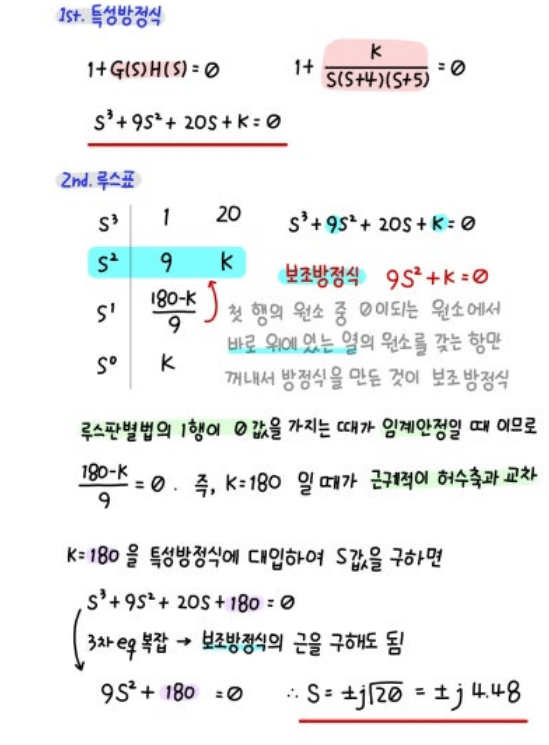 1st. 특성방정식
1+G(S)H(S)=0    1+ K/(S(S+4)(S+5)) =0
S³+9S²+20S+K=0
2nd. 루스표
S³ 1 20    S³+9S²+20S+K=0
S² 9 K    보조방정식 9S²+K=0
S¹ (180-K)/9    첫 행의 원소 중 0이되는 원소에서
바로 위에 있는 열의 원소를 갖는 항만
S⁰ K    꺼내서 방정식을 만든 것이 보조 방정식
루스판별법의 1행이 0값을 가지는 때가 임계안정일 때 이므로
(180-K)/9 =0. 즉, K=180 일 때가 근궤적이 허수축과 교차
K=180 을 특성방정식에 대입하여 S값을 구하면
S³+9S²+20S+180=0
3차 eq 복잡 → 보조방정식의 근을 구해도 됨!
9S²+180 =0    ∴ S=±j√20 = ±j 4.48